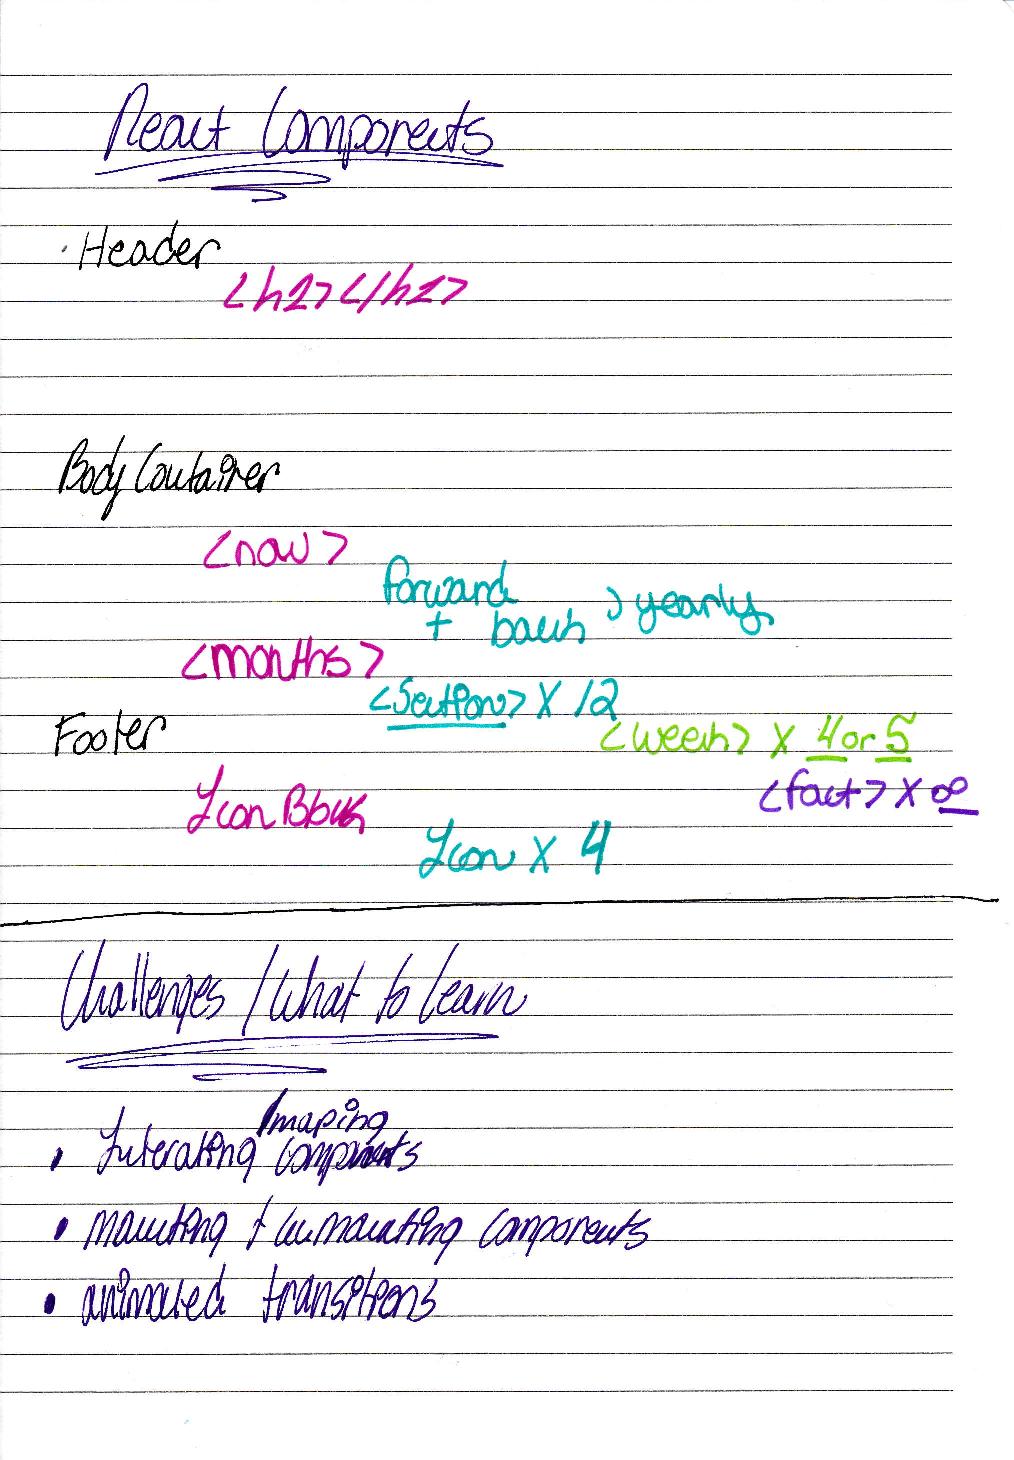 React Components
· Header
<h1></h1>
Body Container
<now>
forward
+ back > yearly
<months>
<Section> X 12
Footer
<week> X 4 or 5
<fact> X ∞
Icon Block
Icon X 4
Challenges / What to Learn
/maping
• Interating components
• mounting + unmounting components
• animated transitions